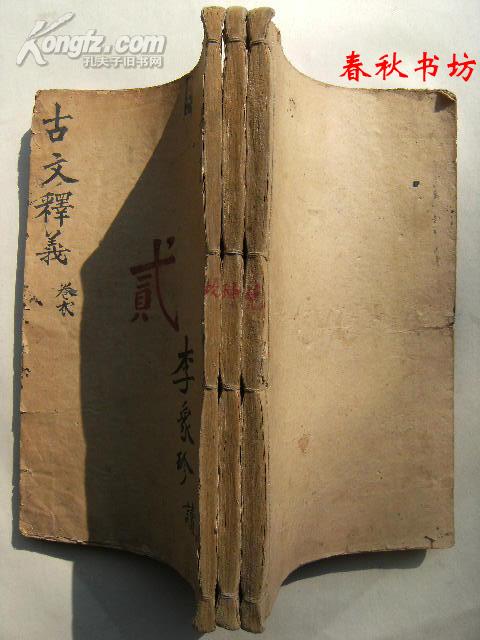 Kongfz.com
孔夫子旧书网
春秋书坊
古文釋義
卷弍
貳
李象珍